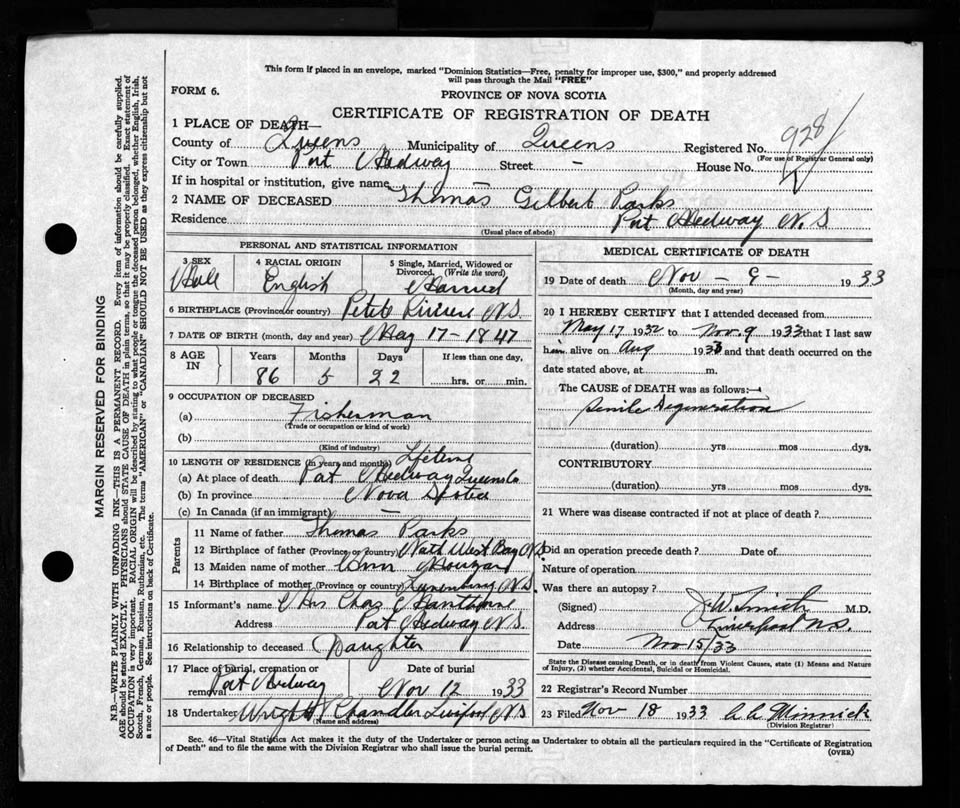 This form if placed in an envelope, marked "Dominion Statistics—Free, penalty for improper use, $300," and properly addressed
will pass through the Mail "FREE"
FORM 6.
PROVINCE OF NOVA SCOTIA
CERTIFICATE OF REGISTRATION OF DEATH
928
1 PLACE OF DEATH—
County of Queens Municipality of Queens Registered No.
(For use of Registrar General only)
City or Town Port Medway Street — House No.
If in hospital or institution, give name —
2 NAME OF DECEASED Thomas Gilbert Parks
Residence Port Medway N.S
(Usual place of abode)
PERSONAL AND STATISTICAL INFORMATION
3 SEX 4 RACIAL ORIGIN 5 Single, Married, Widowed or
Divorced. (Write the word)
Male English Married
6 BIRTHPLACE (Province or country) Petite Riviere N.S
7 DATE OF BIRTH (month, day and year) May 17 - 1847
8 AGE IN Years Months Days If less than one day,
86 5 22 hrs. or min.
9 OCCUPATION OF DECEASED
(a) Fisherman
(Trade or occupation or kind of work)
(b)
(Kind of industry)
10 LENGTH OF RESIDENCE (in years and months) Lifetime
(a) At place of death Port Medway Queens Co
(b) In province Nova Scotia
(c) In Canada (if an immigrant) —
Parents
11 Name of father Thomas Parks
12 Birthplace of father (Province or country) North West Bay N.S
13 Maiden name of mother Ann
14 Birthplace of mother (Province or country) Lunenburg N.S
15 Informant's name Mrs Chas
Address Port Medway N.S.
16 Relationship to deceased Daughter
17 Place of burial, cremation or removal Date of burial
Port Medway Nov 12 1933
18 Undertaker Wright Chandler N S
(Name and address)
MEDICAL CERTIFICATE OF DEATH
19 Date of death Nov - 9 - 1933
(Month, day and year)
20 I HEREBY CERTIFY that I attended deceased from
May 17 1932 to Nov. 9 1933 that I last saw
him alive on Aug 1933 and that death occurred on the
date stated above, at m.
The CAUSE OF DEATH was as follows:—
Senile Degeneration
(duration) yrs mos dys.
CONTRIBUTORY
(duration) yrs mos dys.
21 Where was disease contracted if not at place of death?
Did an operation precede death? Date of
Nature of operation
Was there an autopsy?
(Signed) J. W. Smith M.D.
Address Liverpool N.S.
Date Nov 15/33
State the Disease causing Death, or in death from Violent Causes, state (1) Means and Nature
of Injury, (2) whether Accidental, Suicidal or Homicidal.
22 Registrar's Record Number
23 Filed Nov 18 1933
(Division Registrar)
Sec. 46—Vital Statistics Act makes it the duty of the Undertaker or person acting as Undertaker to obtain all the particulars required in the "Certificate of Registration
of Death" and to file the same with the Division Registrar who shall issue the burial permit.
(OVER)
MARGIN RESERVED FOR BINDING
N.B.—WRITE PLAINLY WITH UNFADING INK—THIS IS A PERMANENT RECORD. Every item of information should be carefully supplied.
AGE should be stated EXACTLY. PHYSICIANS should STATE CAUSE OF DEATH in plain terms, so that it may be properly classified. Exact statement of
OCCUPATION is very important. RACIAL ORIGIN will be described by stating to what people or tongue the deceased person belonged, whether English, Irish,
Scotch, French, German, Russian, Ruthenian, etc. The terms "AMERICAN" or "CANADIAN" SHOULD NOT BE USED as they express citizenship but not
a race or people. See instructions on back of Certificate.